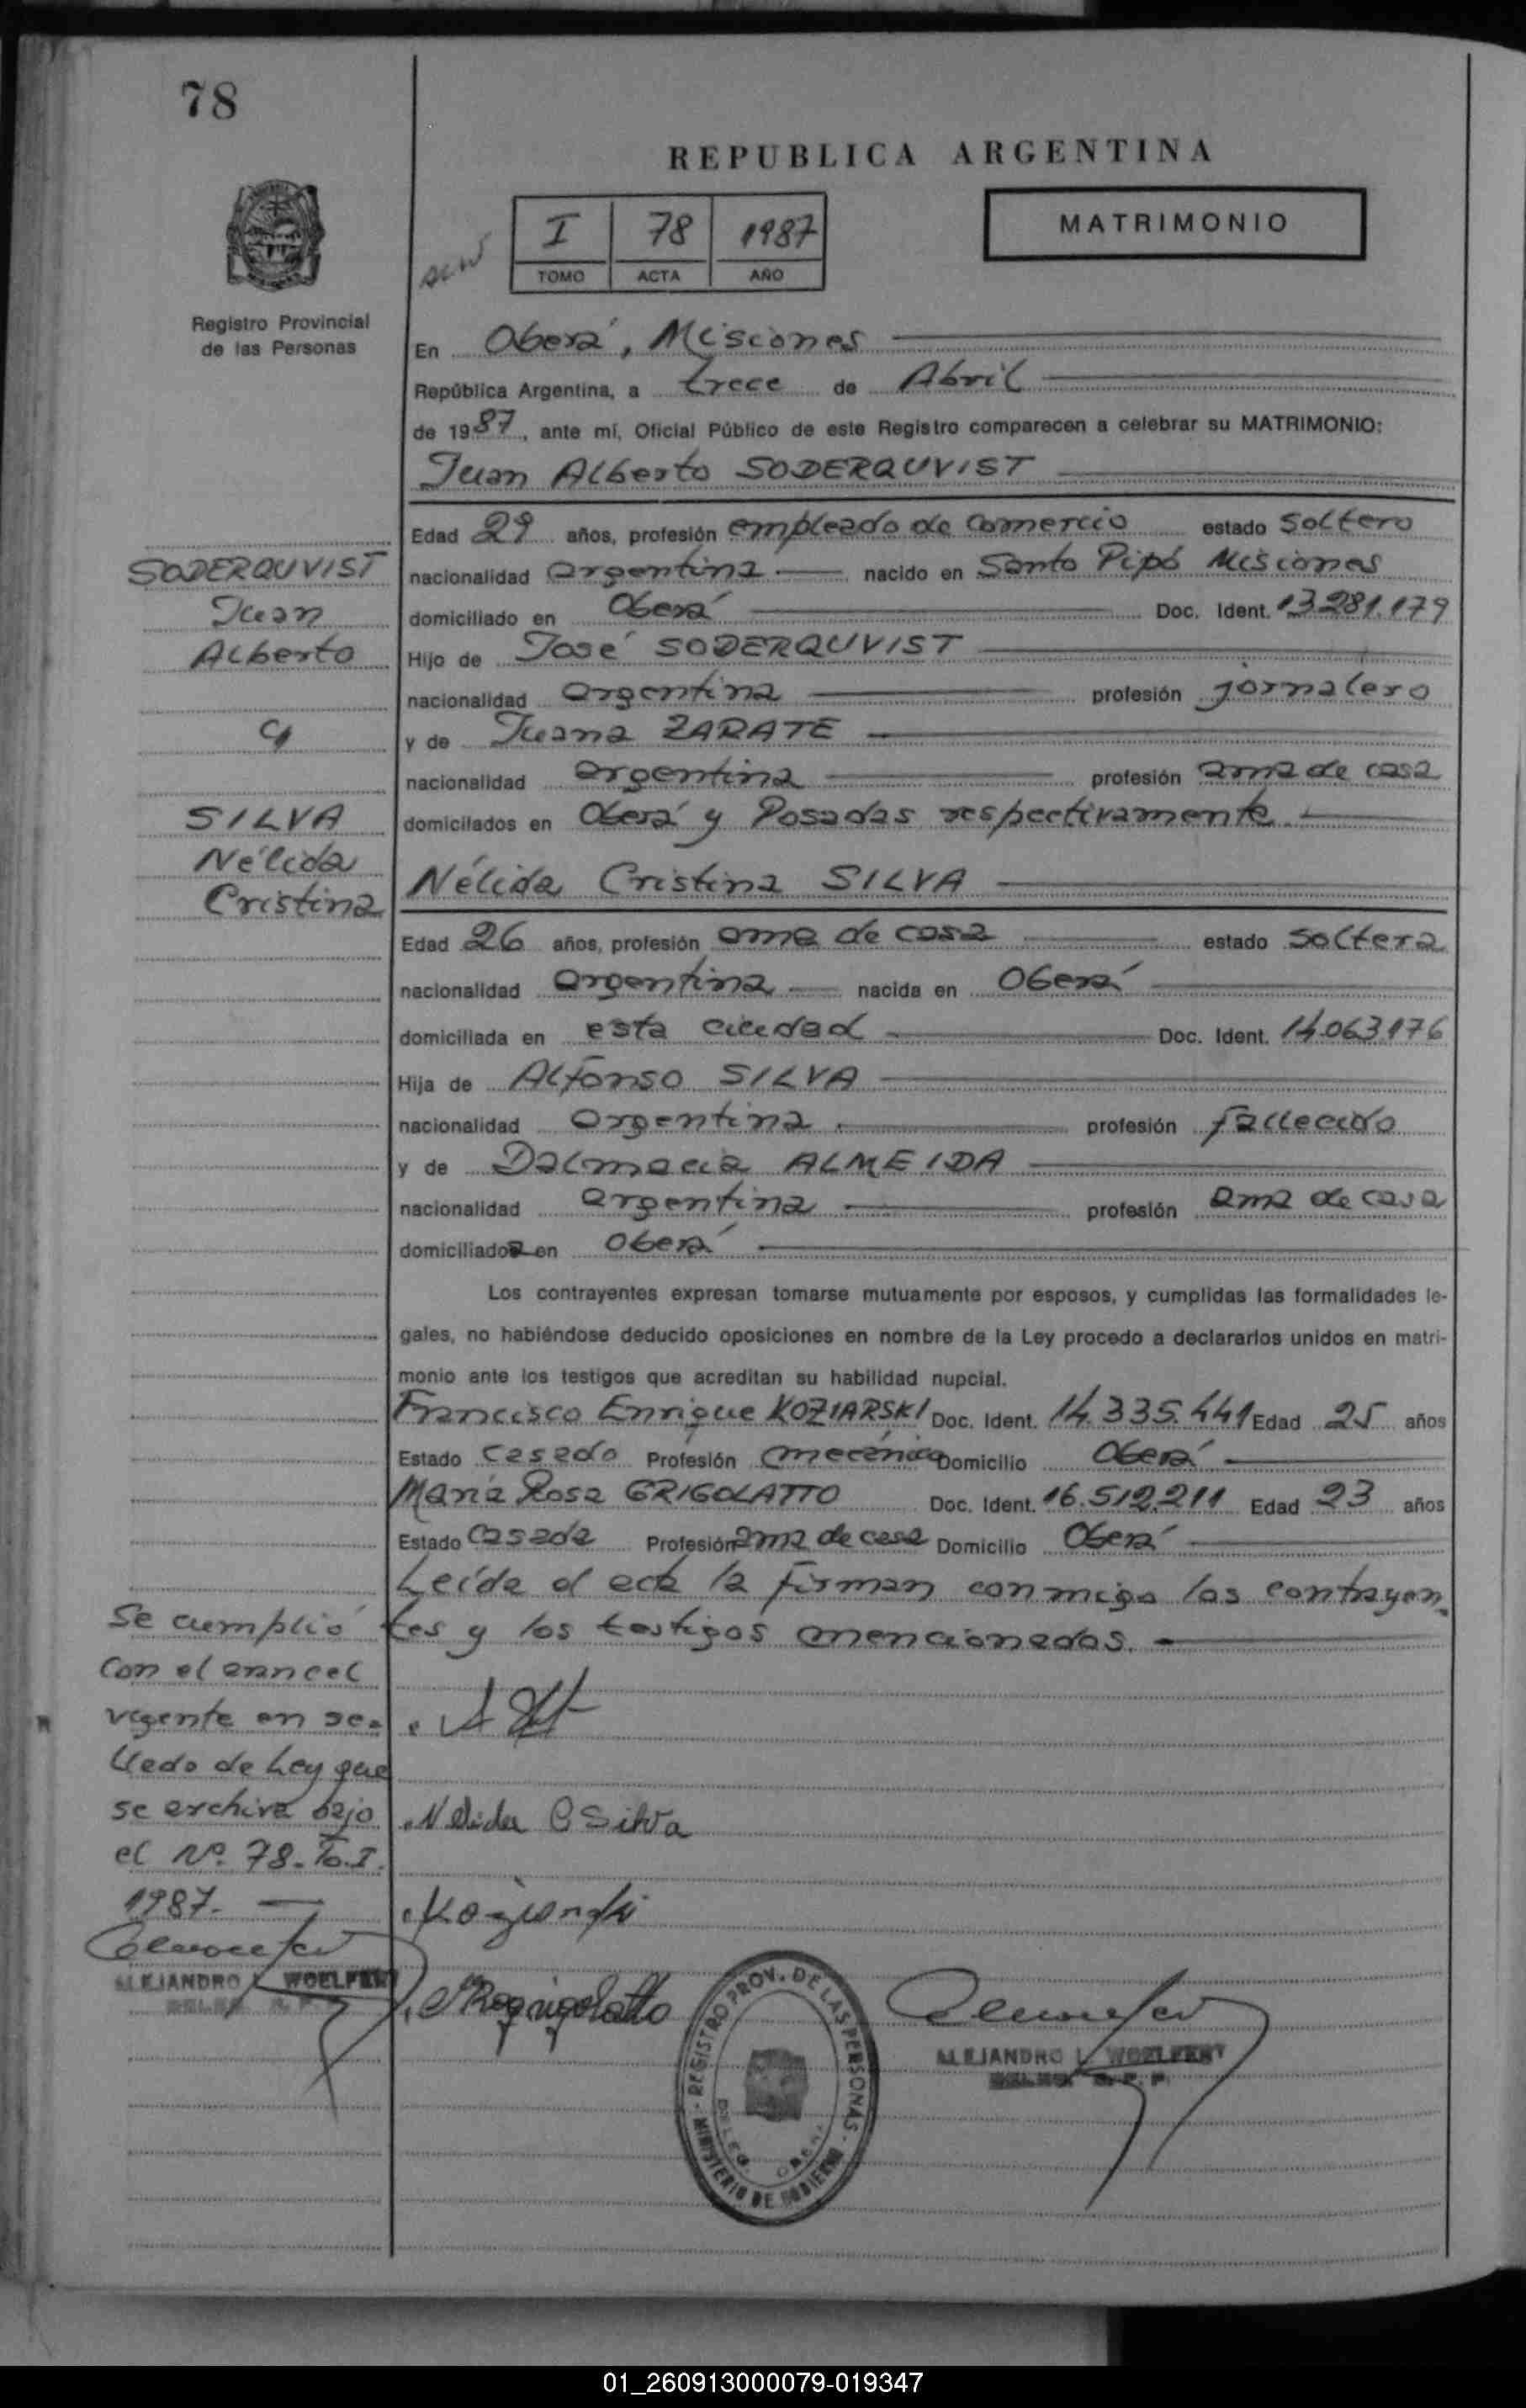 78
REPUBLICA ARGENTINA
I 78 1987
TOMO ACTA AÑO
MATRIMONIO
Registro Provincial
de las Personas
En Oberá, Misiones
República Argentina, a trece de Abril
de 1987, ante mí, Oficial Público de este Registro comparecen a celebrar su MATRIMONIO:
Juan Alberto SODERQUVIST
Edad 29 años, profesión empleado de comercio estado soltero
SODERQUVIST
nacionalidad argentina nacido en Santo Pipó Misiones
Juan
domiciliado en Oberá Doc. Ident. 13.281.179
Alberto
Hijo de José SODERQUVIST
nacionalidad argentina profesión jornalero
c/
y de Juana ZARATE
nacionalidad argentina profesión ama de casa
SILVA
domicilados en Oberá y Posadas respectivamente
Nélida
Cristina
Nélida Cristina SILVA
Edad 26 años, profesión ama de casa estado soltera
nacionalidad argentina nacida en Oberá
domiciliada en esta ciudad Doc. Ident. 14.063.176
Hija de Alfonso SILVA
nacionalidad argentina profesión fallecido
y de Dalmacia ALMEIDA
nacionalidad argentina profesión ama de casa
domiciliada en Oberá
Los contrayentes expresan tomarse mutuamente por esposos, y cumplidas las formalidades le-
gales, no habiéndose deducido oposiciones en nombre de la Ley procedo a declararlos unidos en matri-
monio ante los testigos que acreditan su habilidad nupcial.
Francisco Enrique KOZIARSKI Doc. Ident. 14.335.441 Edad 25 años
Estado casado Profesión mecánico Domicilio Oberá
María Rosa GRIGOLATTO Doc. Ident. 16.512.211 Edad 23 años
Estado casada Profesión ama de casa Domicilio Oberá
Leída el acta la firman conmigo los contrayen
tes y los testigos mencionados.
Se cumplió
con el arancel
vigente en se-
llado de Ley que
se archiva bajo
el Nº 78. To. I.
1987.
Nelida C Silva
Koziarski
MRGrigolatto
ALEJANDRO L. WOELFERT
ALEJANDRO L. WOELFERT
REGISTRO PROV. DE LAS PERSONAS
MINISTERIO DE GOBIERNO
DELEG. OBERA
01_260913000079-019347